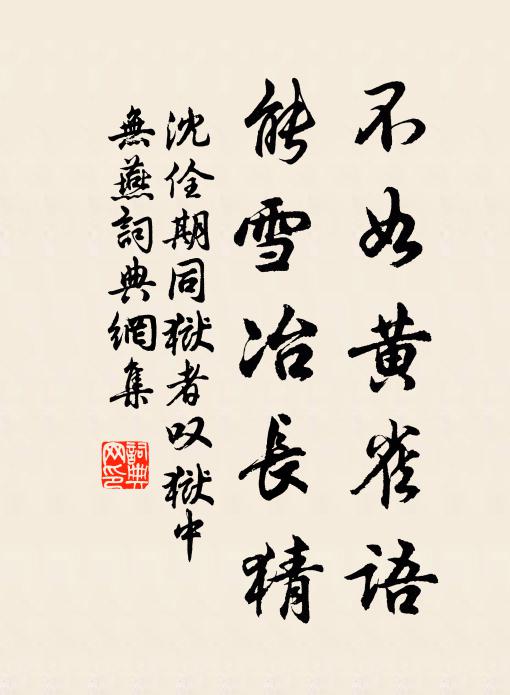 不如黃雀語
能雪冶長猜
沈佺期同獄者叹獄中
無燕詞典網集
詞典
网印